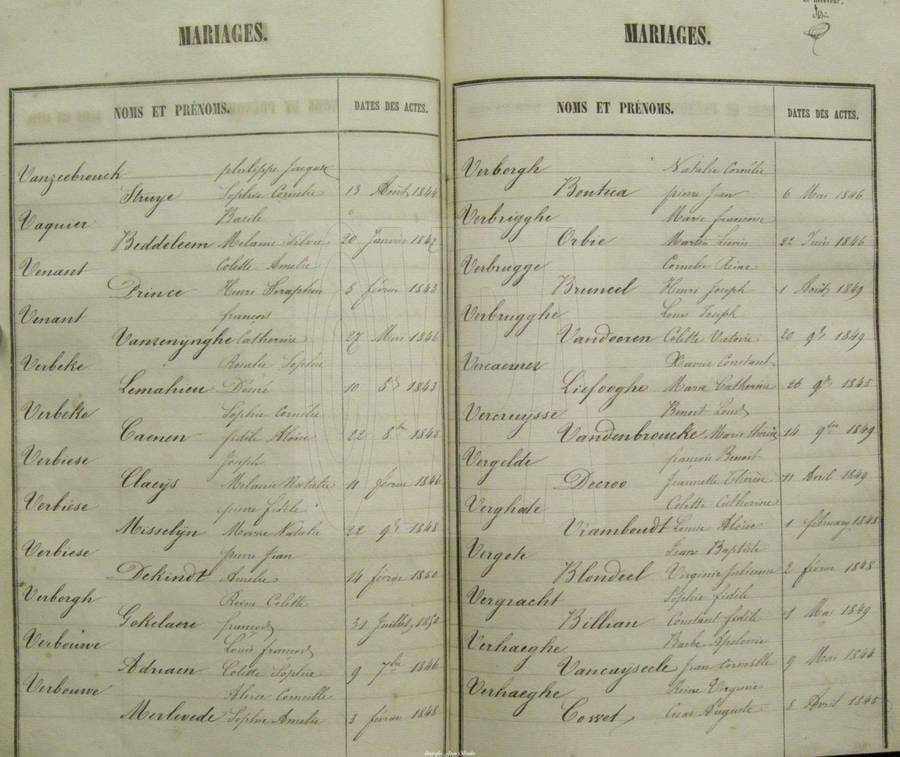 MARIAGES.
NOMS ET PRÉNOMS. DATES DES ACTES.
Vanzeebrouck philippe Jacques
Struye Sophie Cornelie 13 Août 1844
Vaquier Basile
Beddeleem Melanie 20 Janvier 1847
Venant Colette Amelie
Prince Henri Seraphin 5 février 1843
Venant françois
Vanzenynghe Catherine 27 Mars 1846
Verbeke Rosalie Sophie
Lemahieu Désiré 10 1843
Verbeke Sophie Cornelie
Caenen fidèle Aloise 22 8bre 1845
Verbiese Joseph
Claeys Melanie Natalie 11 février 1846
Verbiese pierre fidèle
Misselyn Marie Natalie 22 9bre 1848
Verbiese pierre Jean
Dekindt Amelie 14 février 1850
Verborgh Reine Colette
Gokelaere françois 31 Juillet 1850
Verbouwe Louis francois
Adriaen Colette Sophie 9 7bre 1846
Verbouwe Corneille
Merlevede Sophie Amelie 3 février 1848
MARIAGES.
NOMS ET PRÉNOMS. DATES DES ACTES.
Verborgh Natalie Cornélie
Bonteca pierre Jean 6 Mai 1846
Verbrigghe Marie francoise
Orbie Martin Livin 22 Juin 1846
Verbrugge Cornelie Reine
Bruneel Henri Joseph 1 Août 1849
Verbrugghe Louis Joseph
Vandooren Colette Victoire 20 9bre 1849
Vercaemer Xavier Constant
Liefooghe Marie Catherine 26 9bre 1845
Vercruysse Benoit Louis
Vandenbroucke Marie Thérèse 14 9bre 1849
Vergelde françois Benoit
Decroo Jeannette Thérèse 11 Avril 1849
Verghote Colette Catherine
Vramboudt Louis Aloise 1 february 1848
Vergote Jean Baptiste
Blondeel Virginie Julienne 2 février 1848
Vergracht Sophie fidele
Billiau Constant fidele Mai 1849
Verhaeghe Barbe Apolonie
Vancayseele jean Corneille 9 Mai 1844
Verhaeghe Reine Virginie
Cosset Cesar Auguste 8 Avril 1845